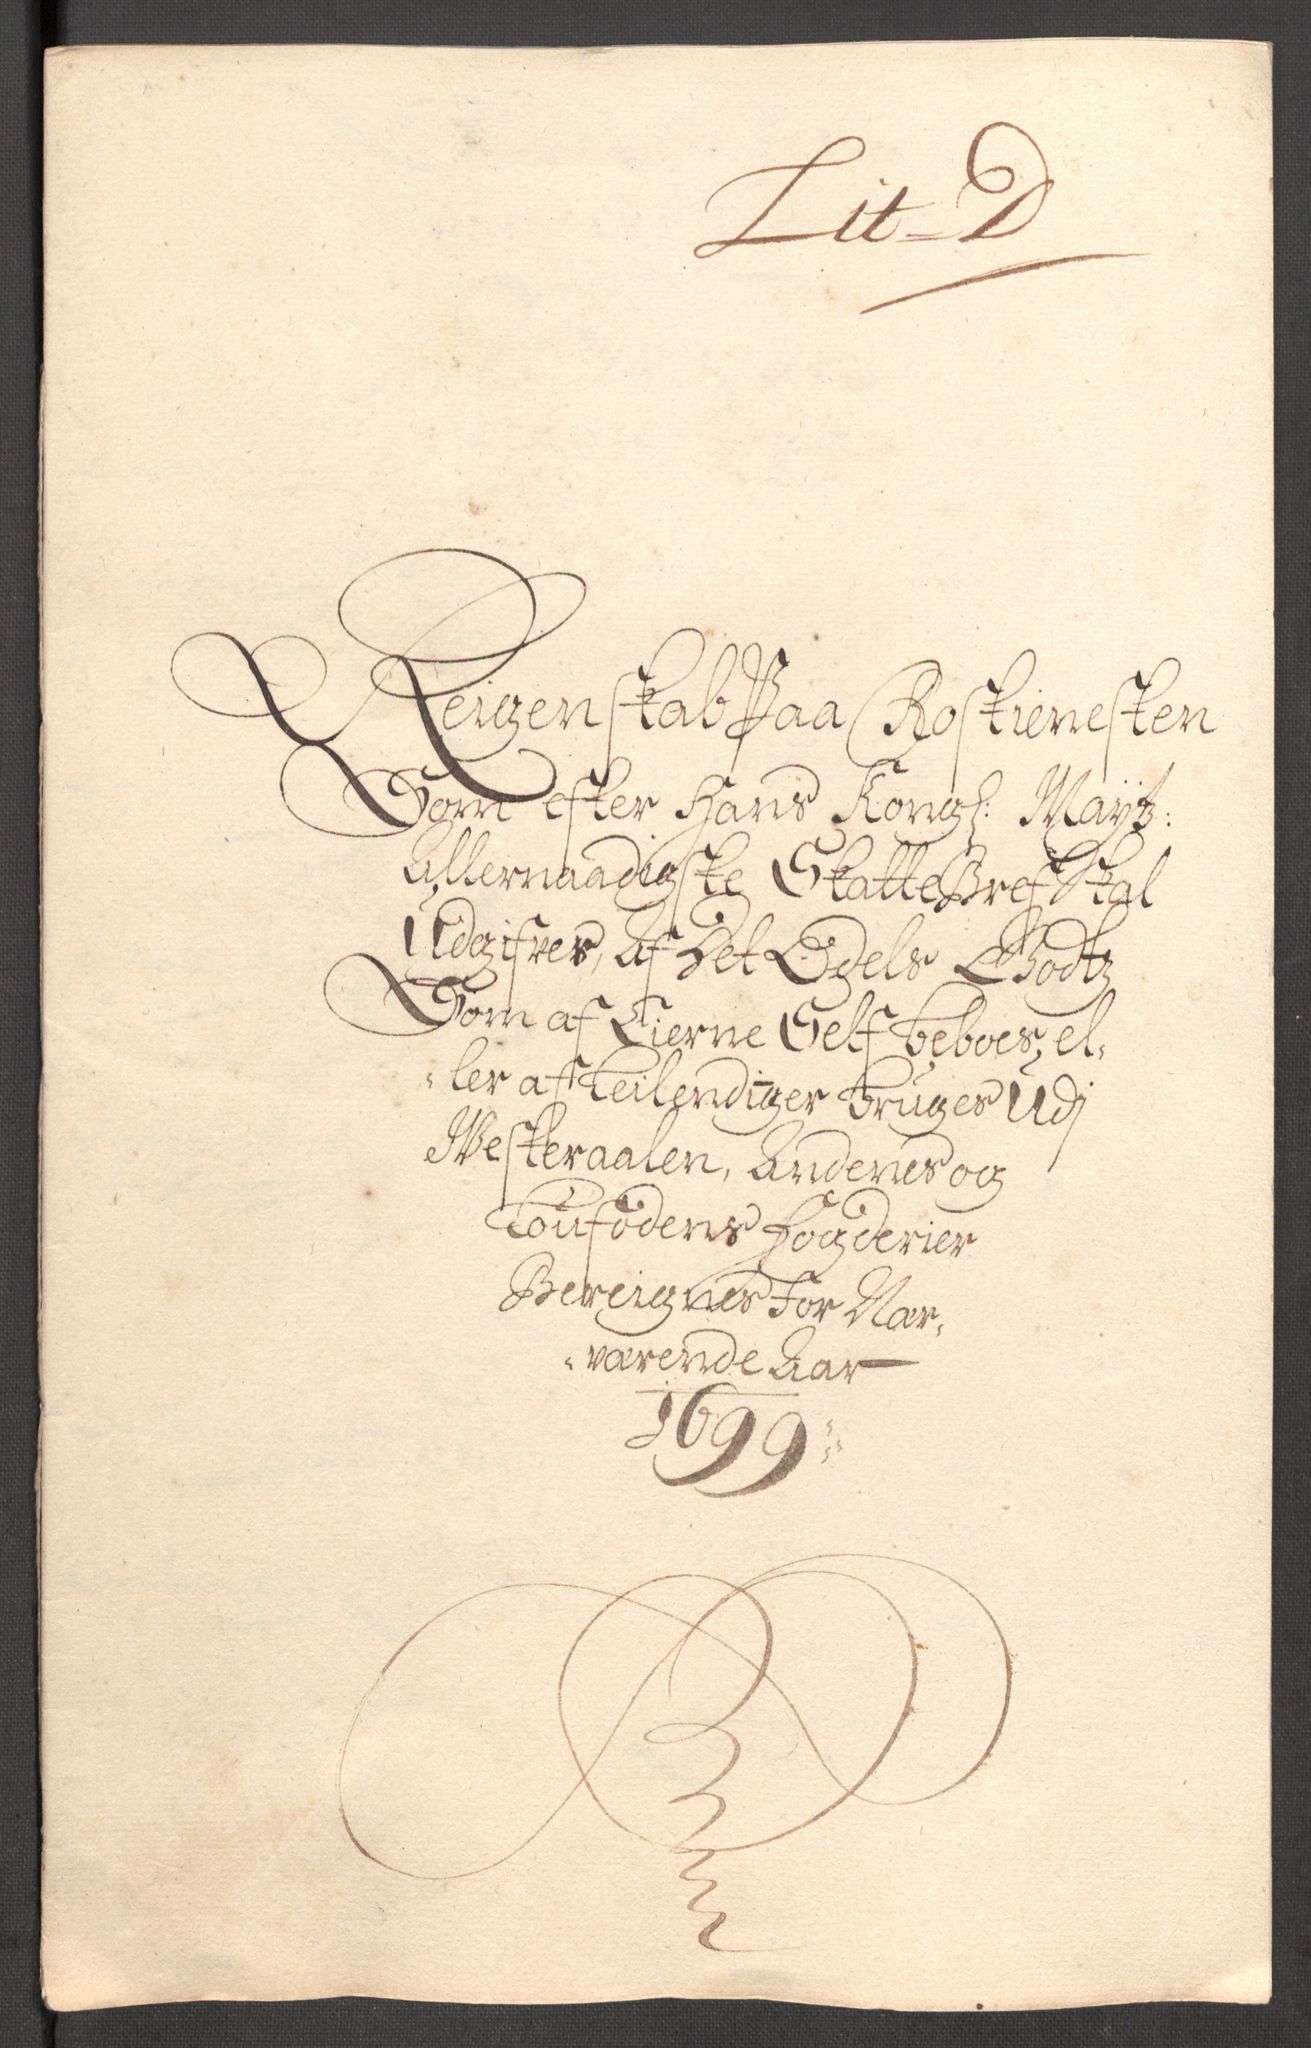 Lit-D
Reigenskab Paa Rostienesten
Som efter Hans Kongl: Maytz:
Allernaadigste SkatteBref Skal
Udgifves, af Det Odels Godtz
Som af Eierne Self beboes, el-
-ler af Leilendiger bruges Udj
Westeraalen, Andenes og
Loufodens fogderier
Bereignes for Nær-
-værende Aar
1699: